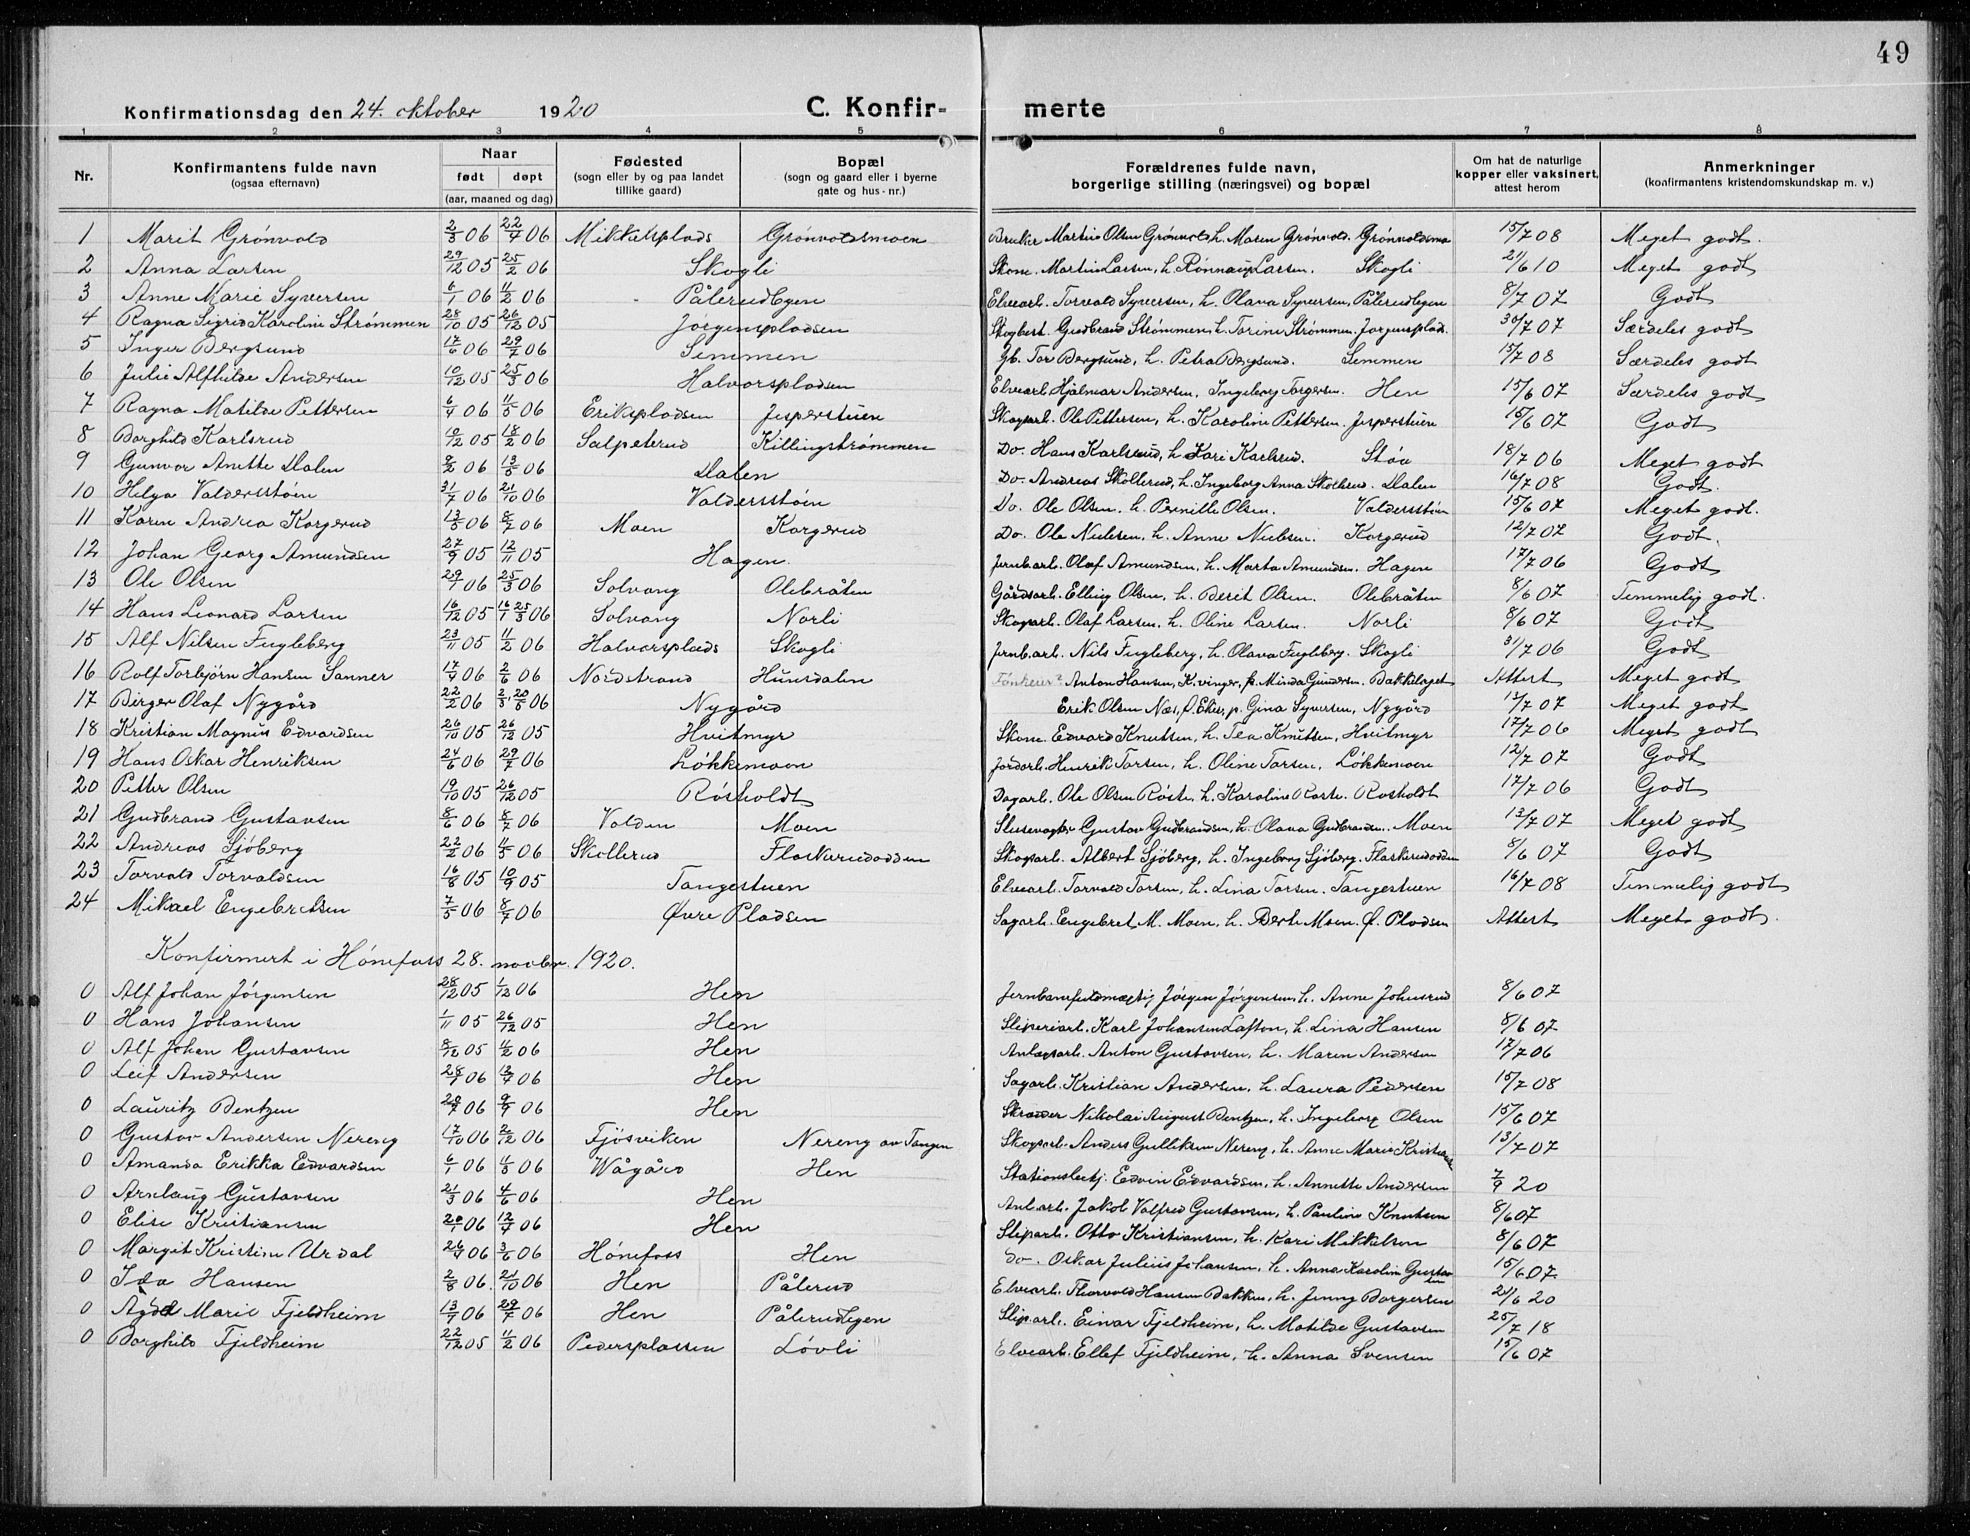 49
Konfirmationsdag den 24. oktober 1920 C. Konfir- merte
1 2 3 4 5 6 7 8
Nr. Konfirmantens fulde navn (ogsaa efternavn) Naar født døpt (aar, maaned og dag) Fødested (sogn eller by og paa landet tillike gaard) Bopæl (sogn og gaard eller i byerne gate og hus-nr.) Forældrenes fulde navn, borgerlige stilling (næringsvei) og bopæl Om hat de naturlige kopper eller vaksinert, attest herom Anmerkninger (konfirmantens kristendomskundskap m. v.)
1 Marit Grönvold 2/3 06 22/4 06 Mikkelsplads Grönvoldsmoen Bruker Martin Olsen Grönvold, h. Maren Grönvold. Grönvoldsmo 15/7 08 Meget godt.
2 Anna Larsen 29/12 05 25/2 06 Skogli Skom. Martin Larsen, h. Rønnaug Larsen. Skogli 21/6 10 Meget godt
3 Anne Marie Syversen 6/1 06 11/2 06 Pålerudegen Elvearb. Torvald Syversen, h. Olava Syversen, Pålerudegen 8/7 07 Godt
4 Ragna Sigrid Karoline Strømmen 28/10 05 26/12 05 Jörgensplodsen Skogbest. Gudbrand Strømmen, h. Torine Strømmen. Jorgensplads. 30/7 07 Særdeles godt
5 Inger Bergsund 17/6 06 29/7 06 Semmen Gb. Tor Bergsund, h. Petra Bergsund. Semmen 15/7 08 Særdeles godt
6 Julie Alfhilde Andersen 10/12 05 25/3 06 Halvorsplodsen Elvearb. Hjalmar Andersen, Ingeborg Torgersen. Hen 15/6 07 Særdeles godt
7 Ragna Matilde Pettersen 6/4 06 11/5 06 Eriksplodsen Jesperstuen Skogarb. Ole Pettersen, h. Karoline Pettersen. Jesperstuen 15/6 07 Godt
8 Borghild Karlsrud 10/12 05 18/2 06 Salpeterud Killingstrømmen Do. Hans Karlsrud, h. Kari Karlsrud. Stöa 18/7 06 Meget godt
9 Gunvor Anette Dalen 8/2 06 13/5 06 Dalen Do. Andreas Skollerud, h. Ingeborg Anna Skollerud. Dalen 16/7 08 Godt.
10 Helga Valdersstöen 31/7 06 21/10 06 Valdersstöen Do. Ole Olsen. h. Pernille Olsen. Valdersstöen 15/6 07 Meget godt.
11 Karen Andrea Korgerud 13/5 06 8/7 06 Moen Korgerud Do. Ole Nielsen, h. Anne Nielsen. Korgerud 12/7 07 Godt.
12 Johan Georg Amundsen 27/9 05 12/11 05 Hagen. Jernb.arb. Olaf Amundsen, h. Marta Amundsen. Hagen 17/7 06 Godt
13 Ole Olsen 29/1 06 25/3 06 Solvang Olebråten Gårdsarb. Elling Olsen, h. Berit Olsen. Olebråten 8/6 07 Temmelig godt.
14 Hans Leonard Larsen 16/12 05 16/1 25/3 06 Solvang Norli Skogarb. Olaf Larsen. h. Oline Larsen. Norli 8/6 07 Godt
15 Alf Nilsen Fugleberg 23/11 05 11/2 06 Halvorsplads Skogli Jrnb.arb. Nils Fugleberg, h. Olava Fugleberg. Skogli 31/7 06 Godt
16 Rolf Torbjörn Hansen Sanner 17/4 06 2/6 06 Nordstrand Hunsdalen Anton Hansen, Kvinger, p. Minda Gundersen. Bakkelaget Attert Meget godt
17 Birger Olaf Nygård 22/2 06 2/3, 20/5 06 Nygård Erik Olsen Næs, p. Gina Syversen, Nygård 13/7 07 Meget godt
18 Kristian Magnus Edvardsen 26/10 05 26/12 05 Hvitmyr Skom. Edvard Knutsen, h. Tea Knutsen, Hvitmyr 17/7 06 Meget godt
19 Hans Oskar Henriksen 24/6 06 29/7 06 Løkkemoen Jordarb. Henrik Torsen, h. Oline Torsen, Løkkemoen 12/7 07 Godt
20 Petter Olsen 19/10 05 26/12 05 Rösholdt Dagarb. Ole Olsen Röste, h. Karoline Roste. Rosholdt 17/7 06 Godt
21 Gudbrand Gustavsen 8/6 06 8/7 06 Volden Moen Slusevogter Gustav Gudbrandsen, h. Olava Gudbrandsen. Moen 13/7 07 Meget godt
22 Andreas Sjöberg 22/2 06 4/5 06 Skollerud Flaskerudodden Skogarb. Albert Sjöberg, h. Ingeborg Sjöberg. Flaskerudodden 8/6 07 Godt
23 Torvald Torvaldsen 16/8 05 10/9 05 Tangestuen Elvearb. Torvald Torsen, h. Lina Torsen. Tangestuen 16/7 08 Temmelig godt
24 Mikael Engebretsen 7/5 06 8/7 06 Øvre Pladsen Sagarb. Engebret M. Moen, h. Berte Moen. Ø. Plodsen Attert Meget godt.
Konfirmert i Hønefoss 28. novbr. 1920.
0 Alf Johan Jörgensen 28/12 05 1/12 06 Hen Jernbanefuldmægtig Jörgen Jörgensen, h. Anne Johnsrud 8/6 07
0 Hans Johansen 1/11 05 26/12 05 Hen Sliperiarb. Karl Johansen Lafton, h. Lina Hansen 8/6 07
0 Alf Johan Gustavsen 8/12 05 11/2 06 Hen Anlægsarb. Anton Gustavsen, h. Maren Andersen 17/7 06
0 Leif Andersen 28/1 06 12/4 06 Hen Sagarb. Kristian Andersen, h. Laura Pedersen 15/7 08
0 Lauritz Bentzen 29/7 06 9/9 06 Hen Skræder Nikolai August Bentzen, h. Ingeborg Olsen 15/6 07
0 Gustav Andersen Nereng 17/10 06 2/12 06 Fjösviken Nereng av Tangen Skogarb. Anders Gulliksen Nereng, h. Anne Marie Kristians 13/7 07
0 Amanda Erikka Edvardsen 6/1 06 4/3 06 Vågård Hen Stationsbetj. Edvin Edvardsen, h. Annette Andersen 7/9 20
0 Arnlaug Gustavsen 21/3 06 4/6 06 Hen Anl.arb. Jakob Valfred Gustavsen, h. Pauline Knutsen 8/6 07
0 Elise Kristiansen 20/1 06 12/4 06 Hen Sliparb. Otto Kristiansen, h. Kari Mikkelsen 8/6 07
0 Margit Kristine Urdal 26/4 06 3/6 06 Hönefoss Hen Do. Oskar Julius Johansen, h. Anna Karoline Gustavsen 15/6 07
0 Ida Hansen 2/8 06. 21/10 06 Hen Pålerud Elvearb. Thorvold Hansen Bakken, h. Jenny Borgersen 21/6 20
0 Agda Marie Fjeldheim 13/1 06 29/7 06 Hen Pålerudegen Sliparb. Einar Fjeldheim, h. Matilde Gustavsen 25/7 18
0 Borghild Fjeldheim 22/12 05 11/2 06 Pedersplassen Lövli Elvearb. Ellef Fjeldheim, h. Anna Svensen 15/6 07